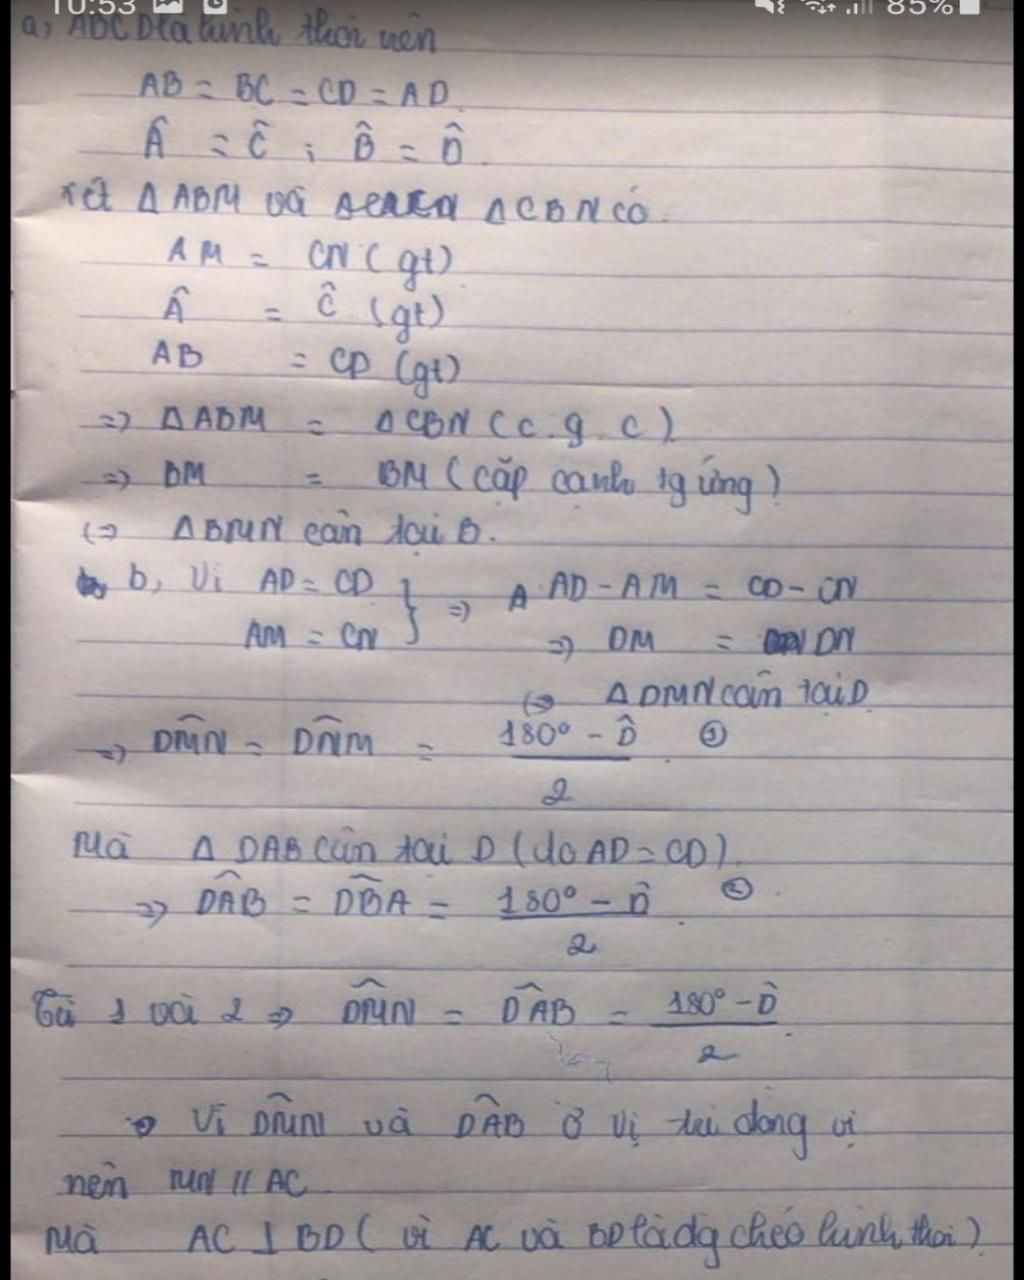 10:53 85%
a, ABCD là hình thoi nên
AB = BC = CD = AD
Â = Ĉ ; B̂ = D̂
xét Δ ABM và Δ CBN có
AM = CN (gt)
Â = Ĉ (gt)
AB = CD (gt)
=> Δ ABM = Δ CBN (c.g.c)
=> BM = BM (cặp cạnh tg ứng)
(=> Δ BMN cân tại B.
b, Vì AD = CD } => AD - AM = CD - CN
AM = CN => DM = DN
(=> Δ DMN cân tại D
=> DM̂N = DN̂M = (180° - D̂)/2 ①
Mà Δ DAB cân tại D (do AD = CD)
=> DÂB = DB̂A = (180° - D̂)/2 ②
Từ 1 và 2 => DM̂N = DÂB = (180° - D̂)/2
Vì DM̂N và DÂB ở vị trí đồng vị
nên MN // AC
Mà AC ⊥ BD (vì AC và BD là đg chéo hình thoi)